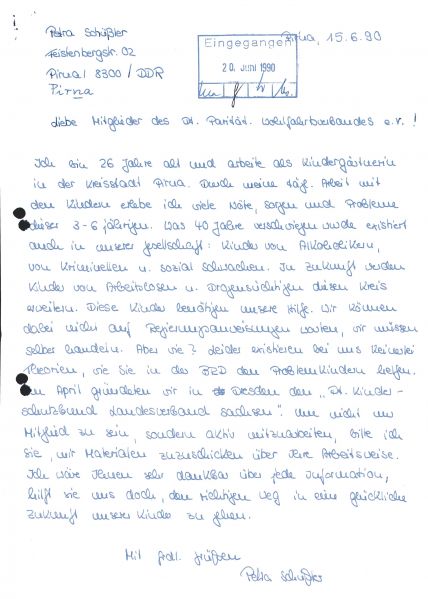 Petra Schüßler
Feistenbergstr. 02
Pirna 8300 / DDR
Pirna
Eingegangen
20. Juni 1990
Pirna, 15.6.90
Liebe Mitglieder des Dt. Parität. Wohlfahrtsverbandes e.V. !
Ich bin 26 Jahre alt und arbeite als Kindergärtnerin
in der Kreisstadt Pirna. Durch meine tägl. Arbeit mit
den Kindern erlebe ich viele Nöte, sorgen und Probleme
dieser 3-6 jährigen. Was 40 Jahre verschwiegen wurde existiert
auch in unserer Gesellschaft: Kinder von Alkoholikern,
von Kriminellen u. sozial schwachen. In Zukunft werden
Kinder von Arbeitslosen u. Drogensüchtigen diesen Kreis
erweitern. Diese Kinder benötigen unsere Hilfe. Wir können
dabei nicht auf Regierungsanweisungen warten, wir müssen
selber handeln. Aber wie? Leider existieren bei uns keinerlei
Theorien, wie Sie in der BRD den Problemkindern helfen.
Im April gründeten wir in Dresden den "Dt. Kinder-
schutzbund Landesverband Sachsen". Um nicht nur
Mitglied zu sein, sondern aktiv mitzuarbeiten, bitte ich
Sie, mir Materialen zuzuschicken über Ihre Arbeitsweise.
Ich wäre Ihnen sehr dankbar über jede Information,
hilft sie uns doch, den richtigen Weg in eine glückliche
Zukunft unserer Kinder zu gehen.
Mit frdl. Grüßen
Petra Schüßler